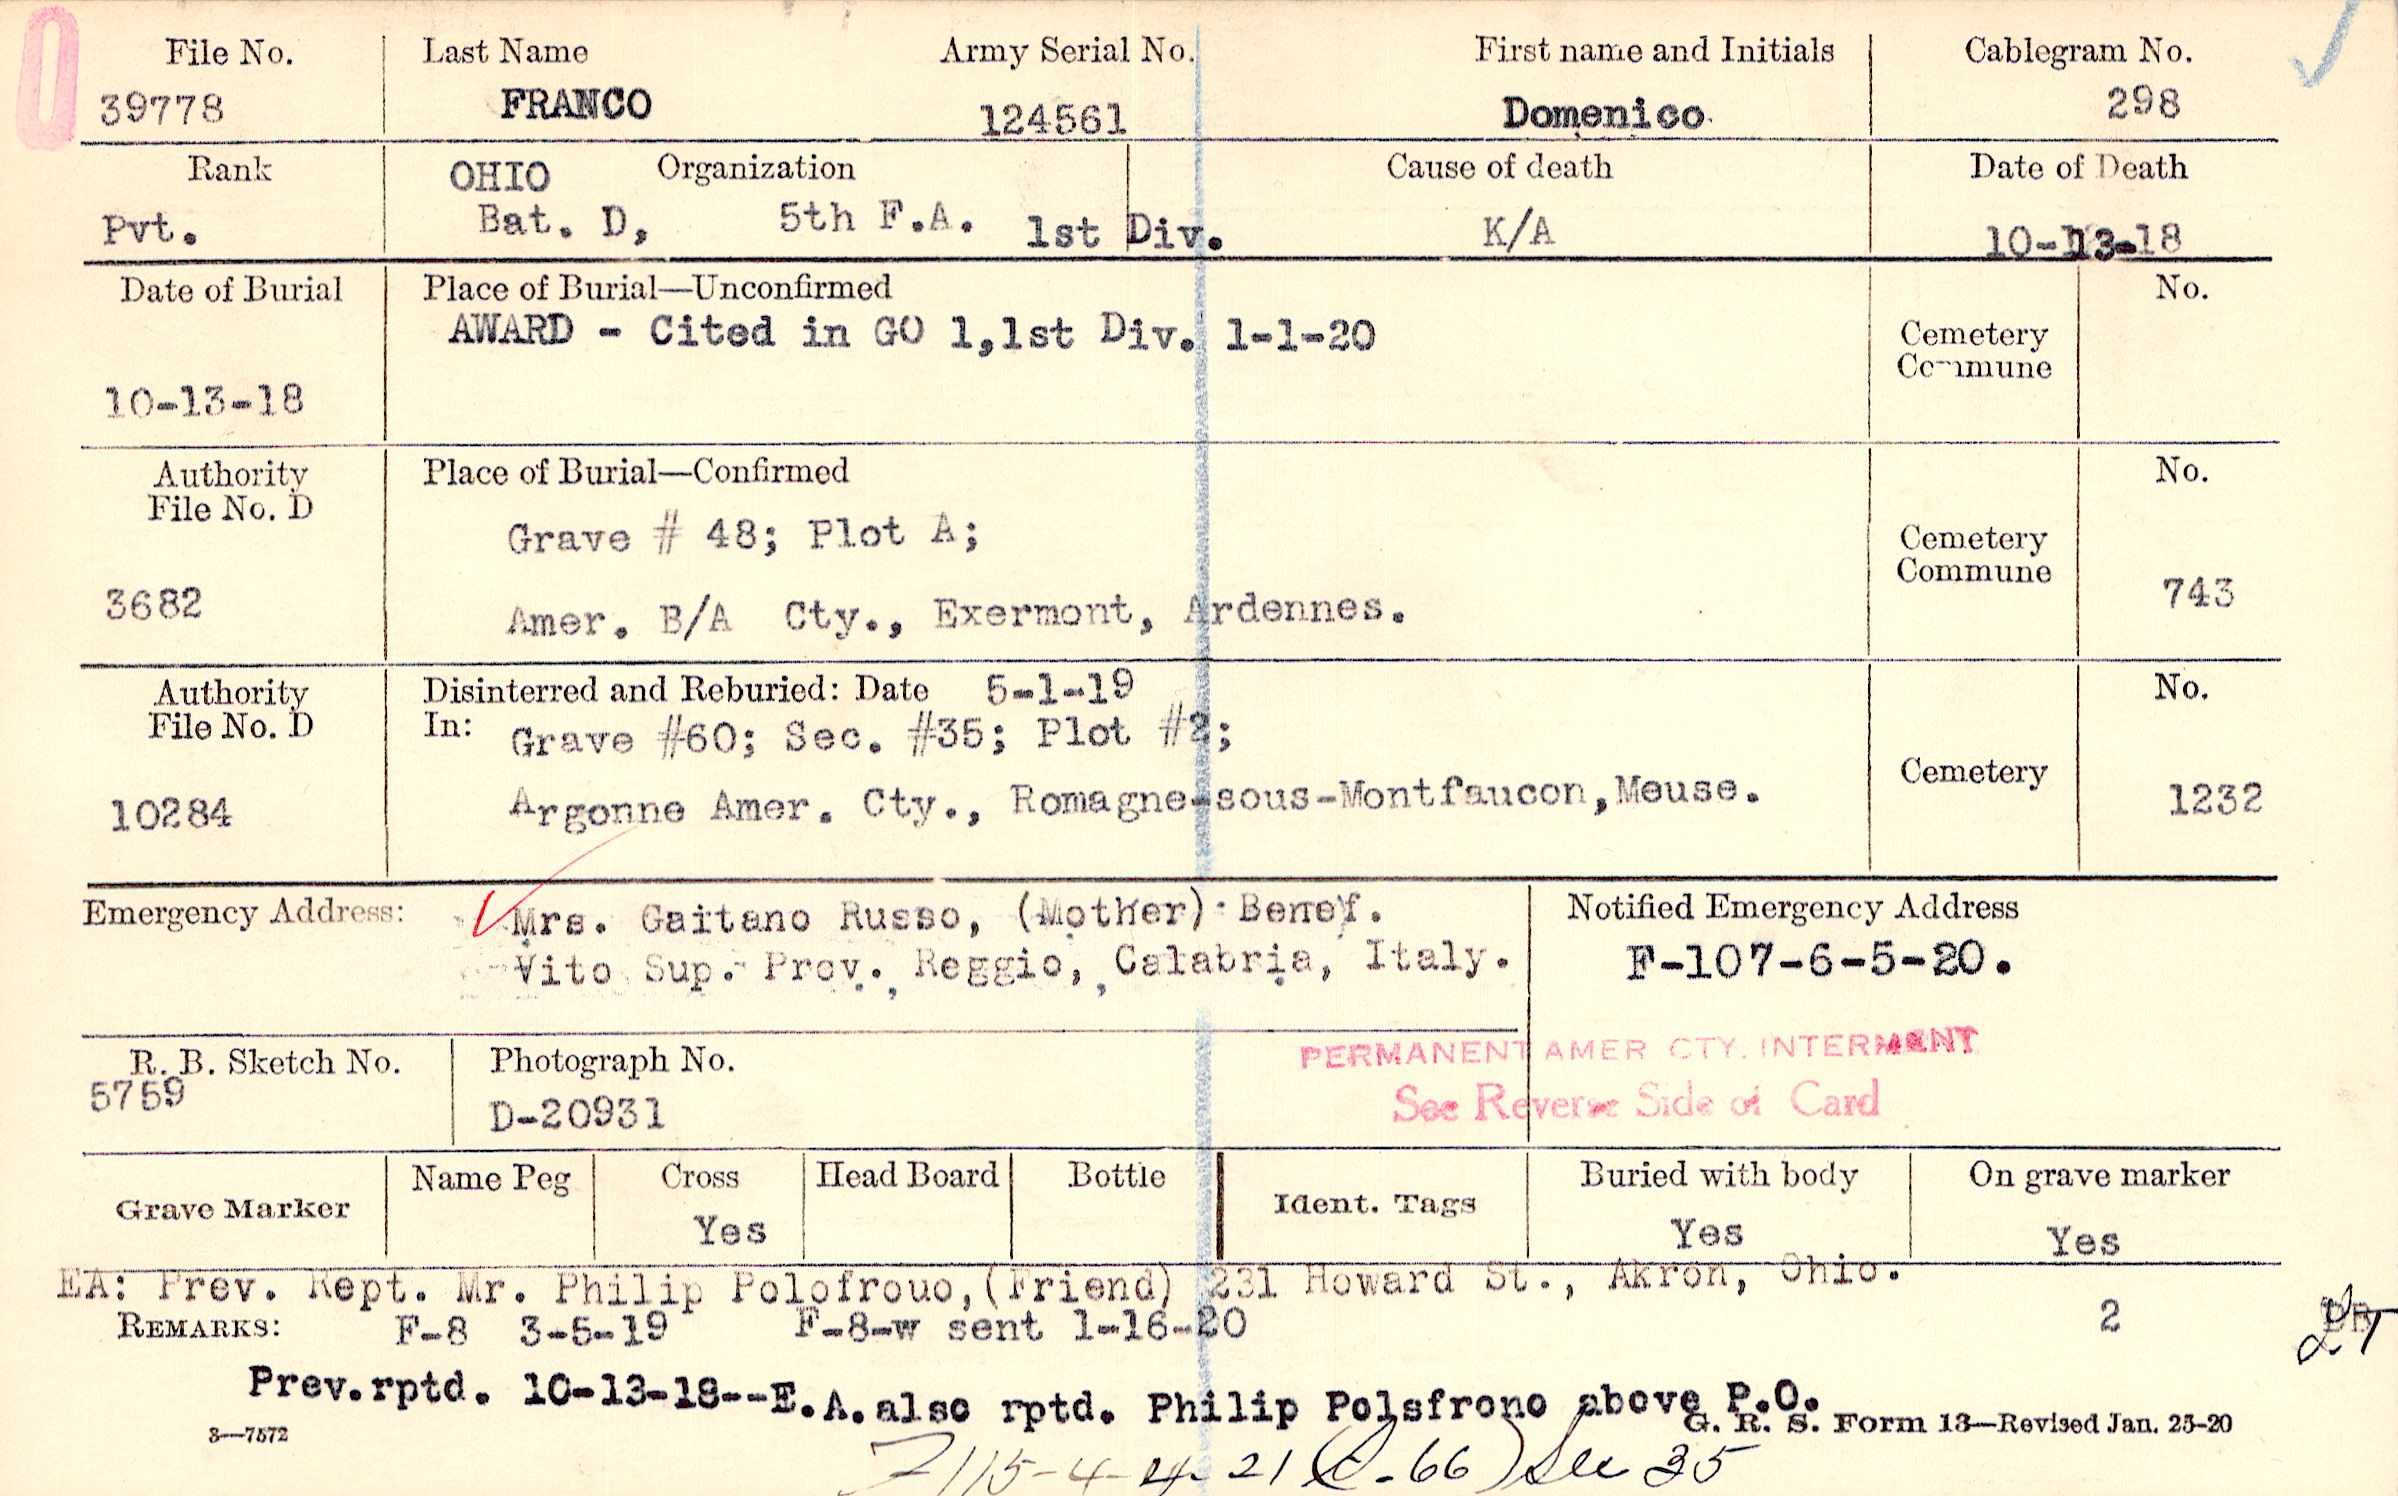 File No. Last Name Army Serial No. First name and Initials Cablegram No.
39778 FRANCO 124561 Domenico 298
Rank OHIO Organization Cause of death Date of Death
Pvt. Bat. D, 5th F.A. 1st Div. K/A 10-13-18
Date of Burial Place of Burial—Unconfirmed No.
AWARD - Cited in GO 1,1st Div. 1-1-20 Cemetery
Commune
10-13-18
Authority Place of Burial—Confirmed No.
File No. D
Grave # 48; Plot A; Cemetery
Commune
3682 Amer. B/A Cty., Exermont, Ardennes. 743
Authority Disinterred and Reburied: Date 5-1-19 No.
File No. D In: Grave #60; Sec. #35; Plot #2;
Cemetery
10284 Argonne Amer. Cty., Romagne-sous-Montfaucon,Meuse. 1232
Emergency Address: Mrs. Gaitano Russo, (Mother) Benef. Notified Emergency Address
Vito Sup. Prov., Reggio, Calabria, Italy. F-107-6-5-20.
R. B. Sketch No. Photograph No. PERMANENT AMER CTY. INTERMENT
5759 D-20931 See Reverse Side of Card
Grave Marker Name Peg Cross Head Board Bottle Ident. Tags Buried with body On grave marker
Yes Yes Yes
EA: Prev. Rept. Mr. Philip Polofrouo,(Friend) 231 Howard St., Akron, Ohio.
REMARKS: F-8 3-5-19 F-8-w sent 1-16-20 2
Prev.rptd. 10-13-18--E.A.also rptd. Philip Polsfrono above P.O.
3—7572 G. R. S. Form 13—Revised Jan. 25-20
-4-4-21 -66) Sec 35